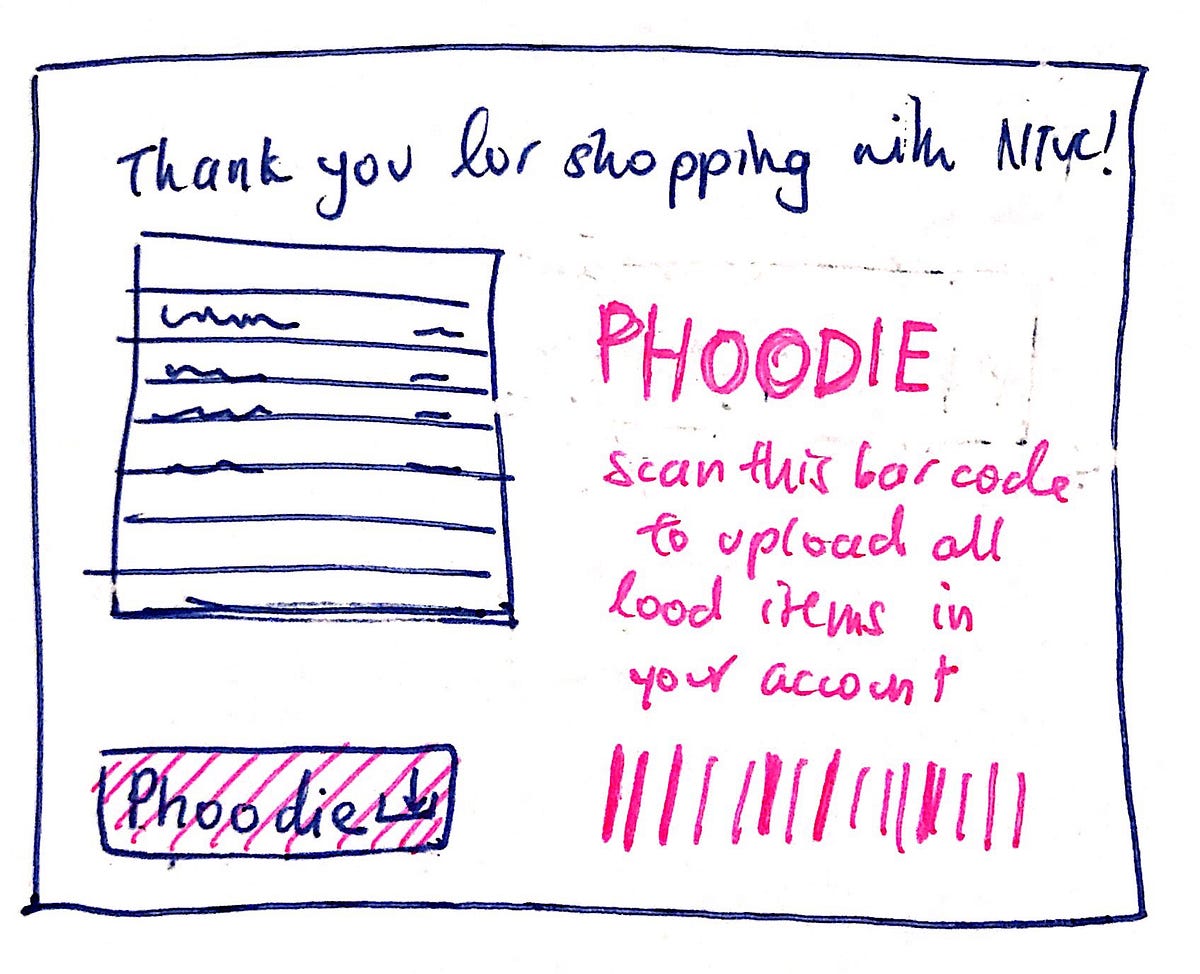 Thank you for shopping with NTUC!
PHOODIE
scan this bar code
to upload all
food items in
your account
Phoodie